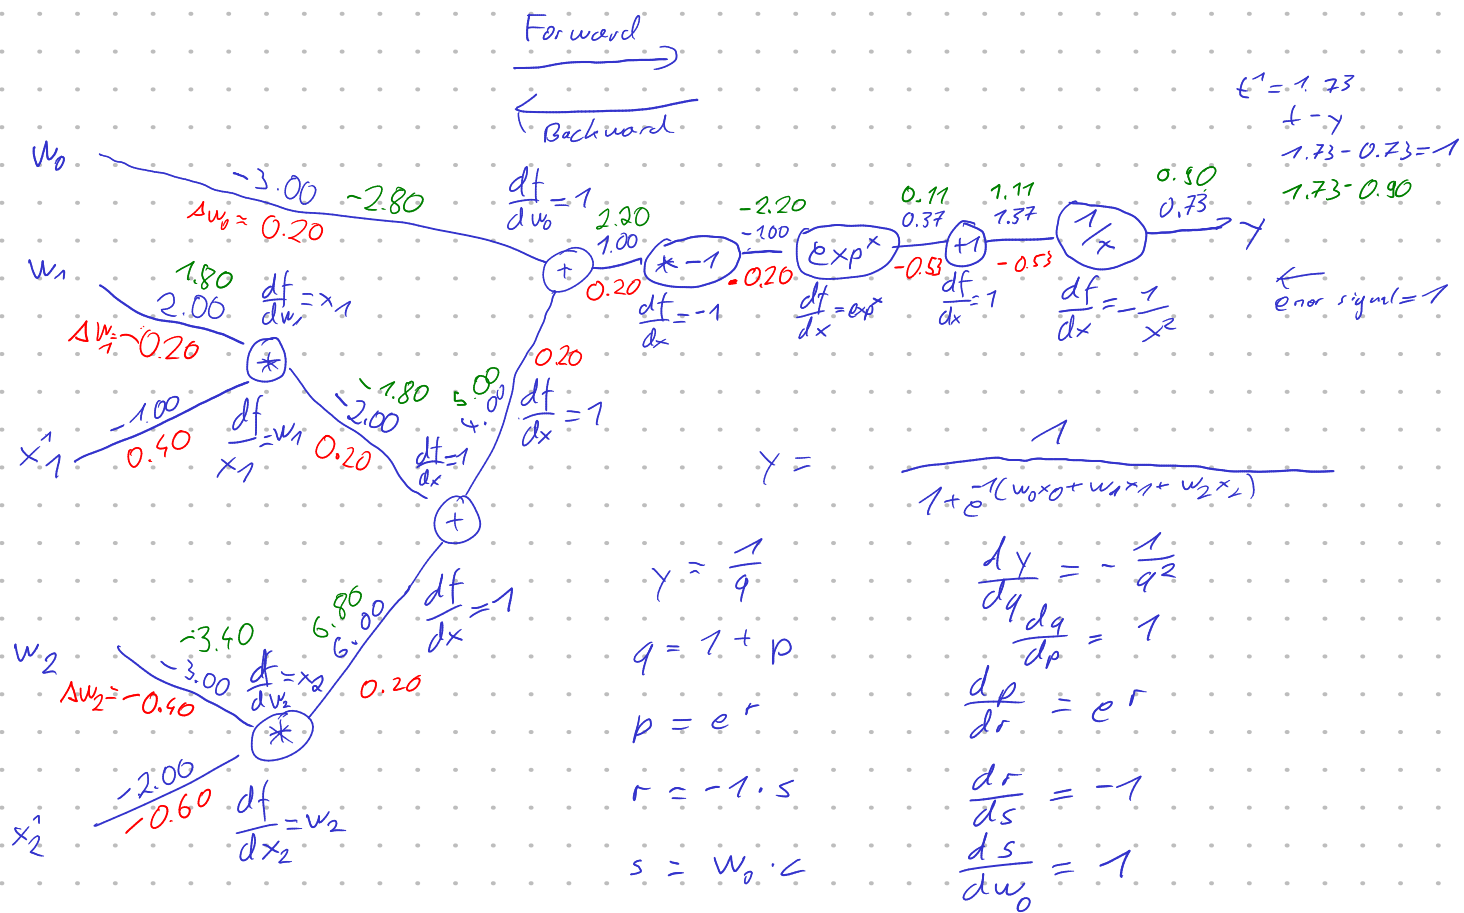 Forward
Backward
t¹ = 1.73
t - y
1.73 - 0.73 = 1
1.73 - 0.90
w₀
-3.00
-2.80
Δw₀ = 0.20
df/dw₀ = 1
2.20
1.00
0.20
+
* -1
df/dx = -1
-2.20
-1.00
-0.20
expˣ
df/dx = expˣ
0.11
0.37
-0.53
+1
df/dx = 1
1.11
1.37
-0.53
1/x
df/dx = -1/x²
0.90
0.73
y
error signal = 1
w₁
1.80
2.00
Δw₁ = -0.20
df/dw₁ = x₁
*
-1.00
0.40
x₁¹
df/x₁ = w₁
-1.80
-2.00
0.20
df/dx = 1
5.00
4.00
0.20
df/dx = 1
+
w₂
-3.40
-3.00
Δw₂ = -0.40
df/dw₂ = x₂
*
6.80
6.00
0.20
df/dx = 1
-2.00
-0.60
x₂¹
df/dx₂ = w₂
y = 1/1+e^-1(w₀x₀ + w₁x₁ + w₂x₂)
y = 1/q
dy/dq = -1/q²
q = 1 + p
dq/dp = 1
p = eʳ
dp/dr = eʳ
r = -1 · s
dr/ds = -1
s = w₀ · c
ds/dw₀ = 1